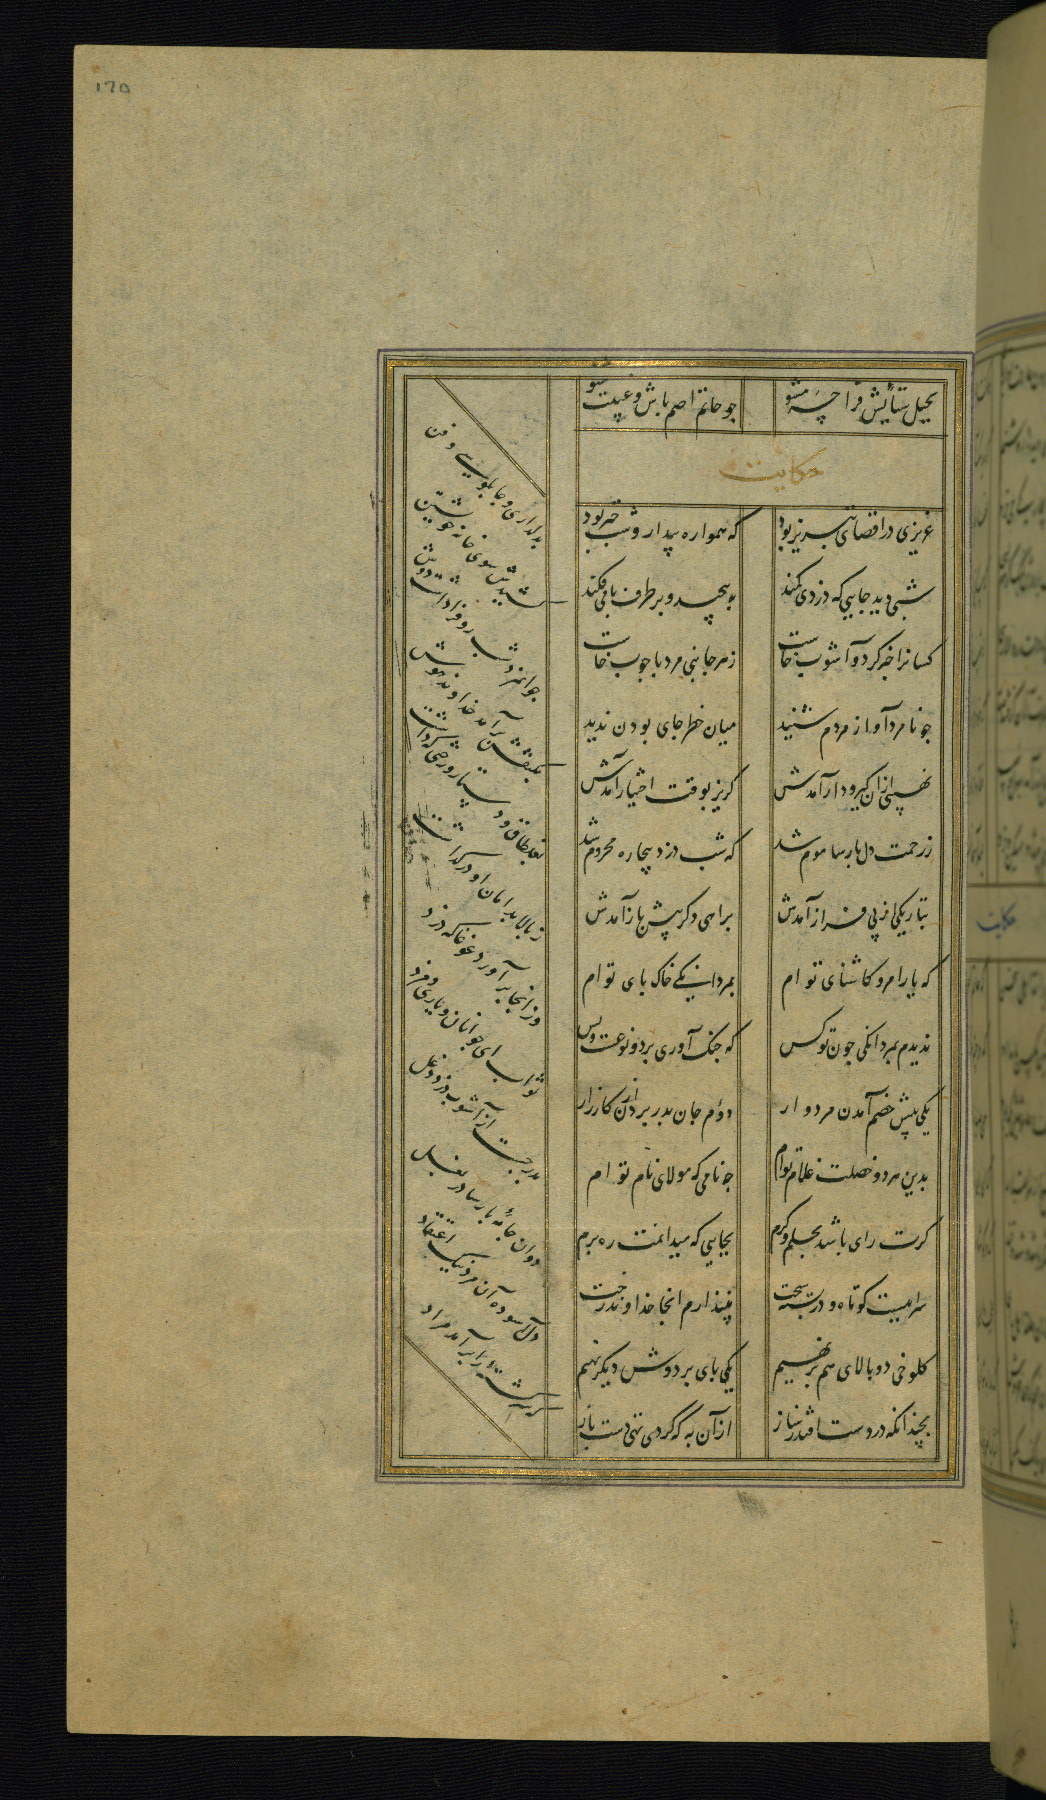 ۱۲۵
بحبل ستایش فرا چه مشو
چو حاتم اصم باش و غیبت شنو
حکایت
عزیزی در اقصای تبریز بود
که همواره بیدار و شب خیز بود
شبی دید جایی که دزدی کمند
بپیچید و بر طرف بامی فکند
کسانرا خبر کرد و آشوب خاست
ز هر جانبی مرد با چوب خاست
چو نامرد آواز مردم شنید
میان خطر جای بودن ندید
نهیبی ازان گیر و دار آمدش
گریز بوقت اختیار آمدش
ز رحمت دل پارسا موم شد
که شب دزد بیچاره محروم شد
بتاریکی از پی فراز آمدش
براهی دگر پیش باز آمدش
که یارا مرو کاشنای توام
بمردانگی خاک پای توام
ندیدم بمردانگی چون تو کس
که جنگ آوری بر دو نوعست و بس
یکی پیش خصم آمدن مردوار
دوم جان بدر بردن از کارزار
بدین هر دو خصلت غلام توام
چه نامی که مولای نام توام
گرت رای باشد بحلم و کرم
بجایی که میدانمت ره برم
سراییست کوتاه و در بسته سخت
نپندارم آنجا خداوند رخت
کلوخی دو بالای هم برنهیم
یکی پای بر دوش دیگر نهیم
بچندانکه در دستت افتد بساز
از آن به که گردی تهی دست باز
بدلداری و چابلوسی و فن
کشیدش سوی خانه خویشتن
جوانمرد شب رو فرو داشت دوش
بکتفش برآمد خداوند هوش
بغلطاق و دستار و رختی که داشت
ز بالا بدامان او در گذاشت
وز آنجا برآورد غوغا که دزد
ثواب ای جوانان و یاری و مزد
بدر جست از آشوب دزد دغل
دوان جامه پارسا در بغل
دل آسوده آن مرد نیک اعتقاد
که سرگشته‌ای را برآمد مراد